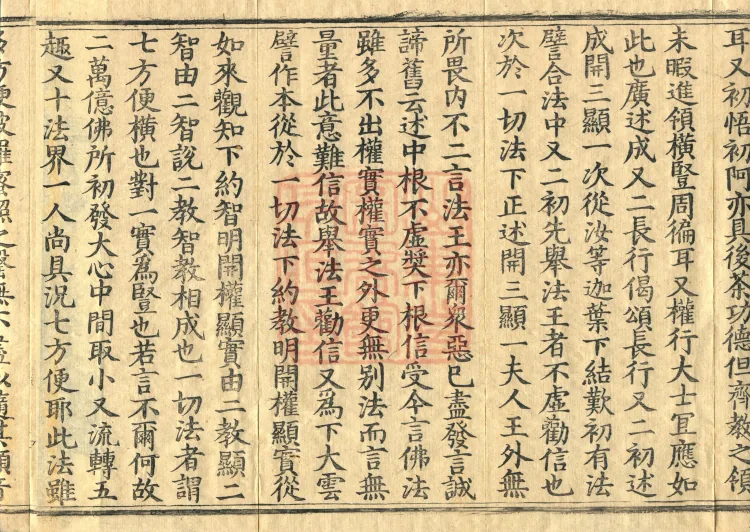 耳又初悟初阿亦具後茶功德但齊教之領
未暇進領橫豎周徧耳又權行大士冝應如
此也廣述成又二長行偈頌長行又二初述
成開三顯一次從汝等迦葉下結歎初有法
譬合法中又二初先舉法王者不虛勸信也
次於一切法下正述開三顯一夫人王外無
所畏内不二言法王亦爾衆惡已盡發言誠
諦舊云述中根不虛奬下根信受今言佛法
雖多不出權實權實之外更無别法而言無
量者此意難信故舉法王勸信又爲下大雲
譬作本從於一切法下約教明開權顯實從
如來觀知下約智明開權顯實由二教顯二
智由二智說二教智教相成也一切法者謂
七方便橫也對一實爲豎也若言不爾何故
二萬億佛所初發大心中間取小又流轉五
趣又十法界一人尚具況七方便耶此法雖